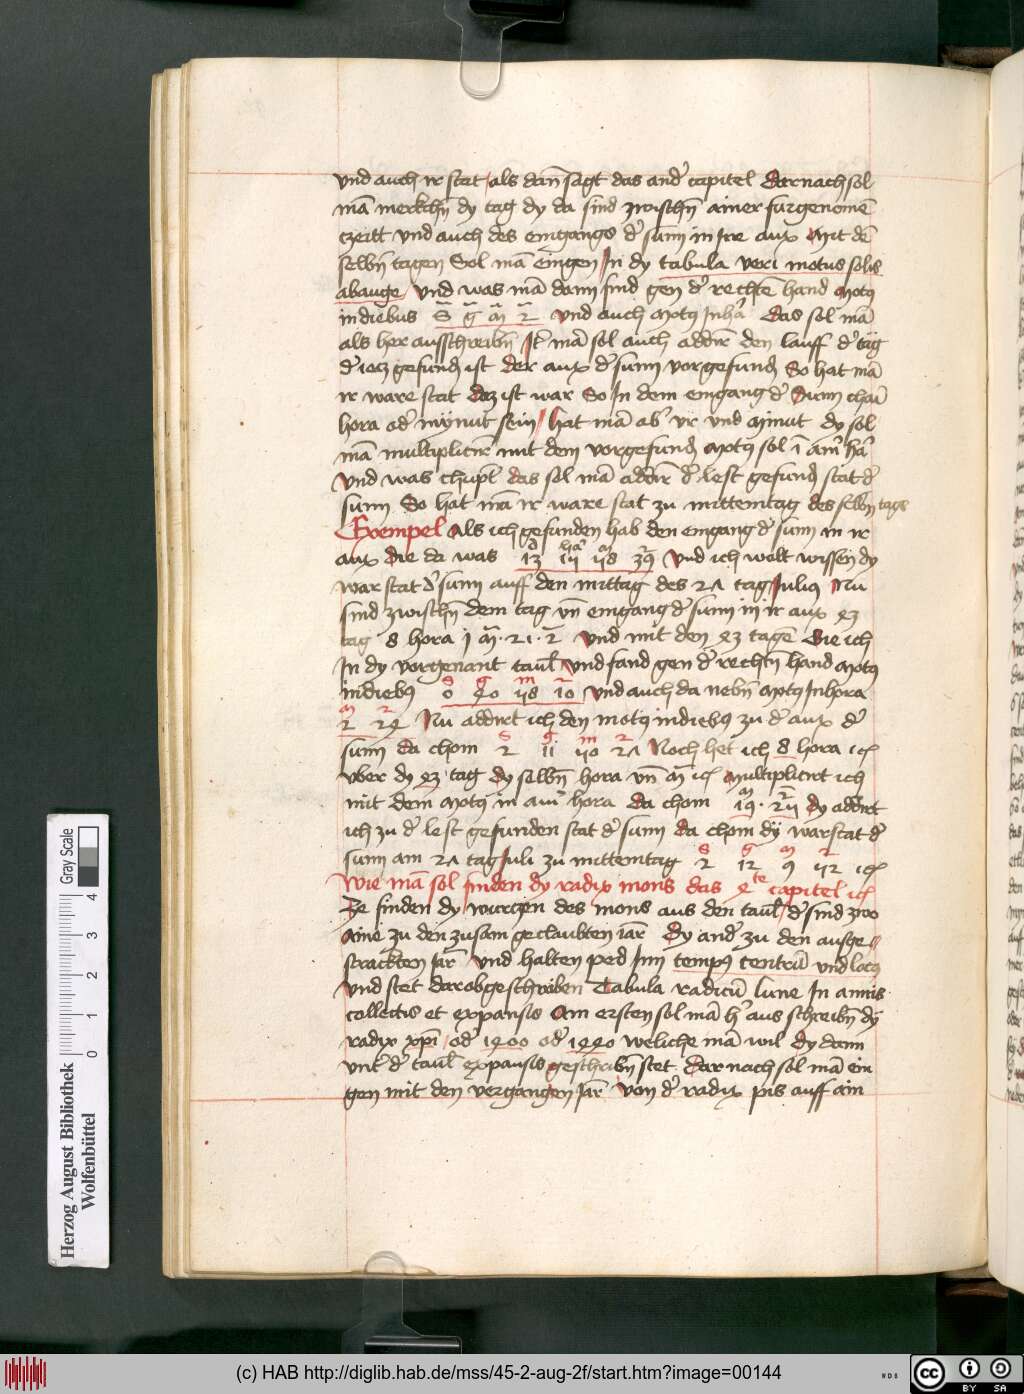 vnd auch ir stat als dan̄ sagt das and' capitel Darnach sol
mā merkh̄n dy tag dy da sind zwischn̄ ainer furgenomē
czeitt vnd auch des eingangs d' sunn in Ire aux Mit dē
selbn̄ tagen Sol mā eingen In dy tabula veri motus solis
ab auge vnd was mā dann find gen d' rechtē hand Motꝯ
in diebus S̄ ḡ m̄ 2̄ vnd auch Motꝯ In hā Das sol mā
als her ausschreibn̄ It' mā sol auch addir̄ den lauff d' tag
d' iecz gefundn̄ ist der aux d' sunn vorgefundn̄ So hat mā
ir ware stat Daz ist war So In dem eingang d' Sunn chain
hora od' mynut sein hat mā ab' vr vnd Minut dy sol
mā multiplicir̄ mit dem vorgefundn̄ Motꝯ sol ī ain' hā
vnd was chupt das sol mā addir̄ d' lest gefundn̄ stat d'
sunn So hat mā ir ware stat zu mittemtag des selbn̄ tags
Exempel Als ich gefunden hab den eingang d' sunn in ir
aux Die da was 13 vnd ich welt wissen dy
war stat d' sunn auff den mittag des 27 tag Julius Nu
sind zwischn̄ dem tag vn̄ eingang d' sunn in ir aux 43
tag 8 hora 1 m̄ 21 2̄ vnd mit den 43 tagē Gie ich
In dy vorgenant taul' vnd fand gen d' rechtn̄ hand Motꝯ
in diebꝯ s 0 g 40 m 58 2 10 vnd auch da nebn̄ Motꝯ In hora
m 2 2 24 Nu addirt ich den motꝯ in diebꝯ zu d' aux d'
sunn da chom s 2 g 11 m 50 2 27 Noch het ich 8 hora ꝛc
vber dy 43 tag dy selbn̄ hora vn̄ m̄ ꝛc Multiplicirt ich
mit dem Motꝯ in ain' hora da chom m 19 dy addirt
ich zu d' lest gefunden stat d' sunn da chom dy war stat d'
sunn am 27 tag Juli zu mittemtag s 2 g 12 m 9 2 52 ꝛc
Wie mā sol finden dy radix mons das 4te capitel ꝛc
Ze finden dy wurczen des mons aus den taul' d' sind zwo
Aine zu den zusam geclaubten iar Dy and' zu den ausge
strackten Jar vnd halten ped Inn tempꝯ centrū vnd locꝯ
vnd stet dar ob geschriben Tabula radicū lune In annis
collectis et expansis Am ersten sol mā h' aus schreibn̄ dy
radix xp̄i od' 1400 od' 1440 weliche mā wil Dy dann
vnt' d' taul' expansis geschribn̄ stet Dar nach sol mā ein
gen mit den vergangen Jar von d' radix pis auff ain
Herzog August Bibliothek
Wolfenbüttel
Gray Scale
0 1 2 3 4
(c) HAB http://diglib.hab.de/mss/45-2-aug-2f/start.htm?image=00144
WDB
cc BY SA